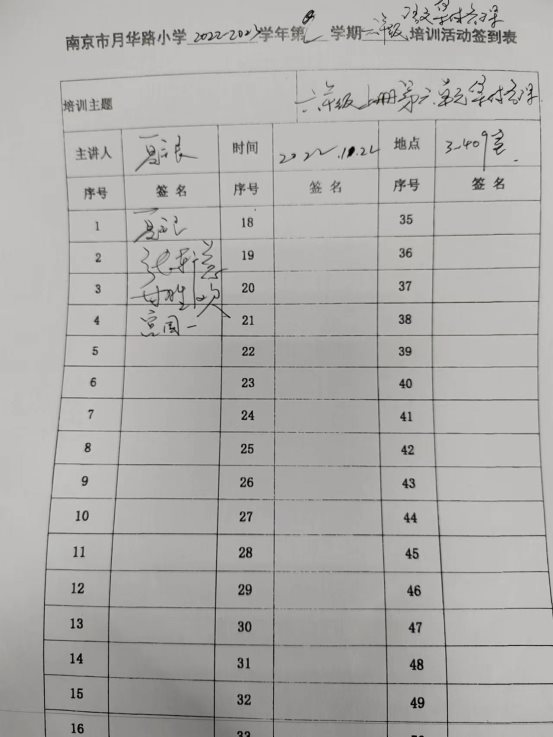 语文集体备课
南京市月华路小学2022-2023学年第 学期六年级培训活动签到表
培训主题 六年级上册第六单元集体备课
主讲人 时间 2022.10.26 地点 3-409室
序号 签名 序号 签名 序号 签名
1 18 35
2 19 36
3 20 37
4 宫国一 21 38
5 22 39
6 23 40
7 24 41
8 25 42
9 26 43
10 27 44
11 28 45
12 29 46
13 30 47
14 31 48
15 32 49
16 33